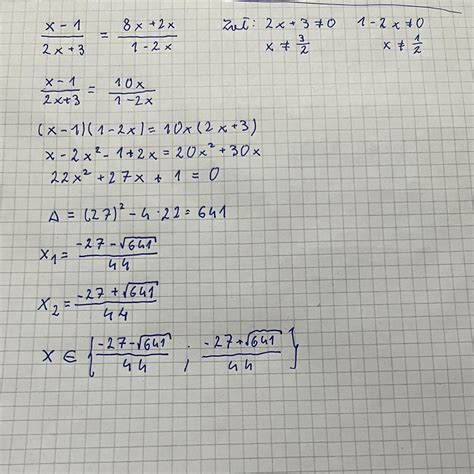 (x-1)/(2x+3) = (8x+2x)/(1-2x) Zał: 2x+3≠0 1-2x≠0
x≠3/2 x≠1/2
(x-1)/(2x+3) = 10x/(1-2x)
(x-1)(1-2x)=10x(2x+3)
x-2x²-1+2x=20x²+30x
22x²+27x+1=0
Δ=(27)²-4·22=641
x₁=(-27-√641)/44
x₂=(-27+√641)/44
x∈{(-27-√641)/44 ; (-27+√641)/44}